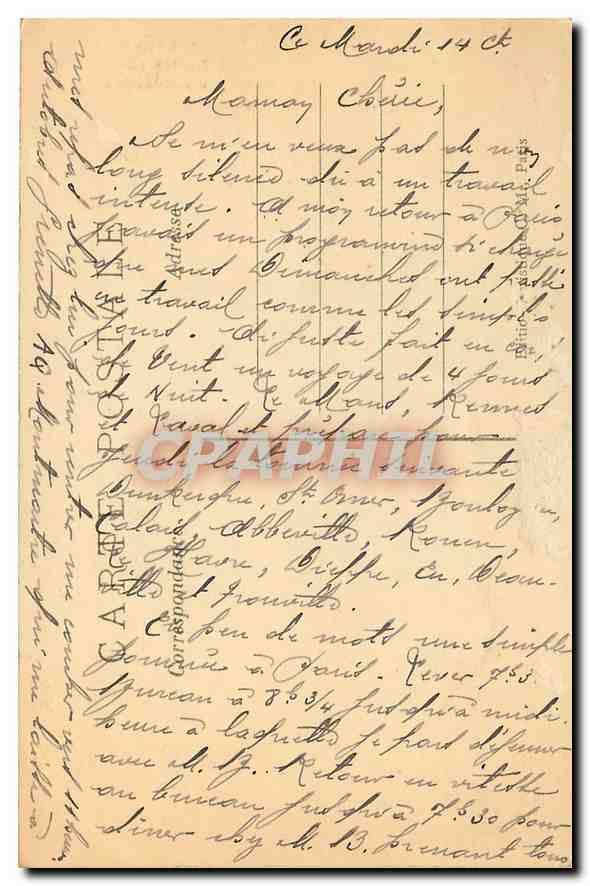 Ce Mardi 14 Ct.
Maman Chérie,
Ne m'en veux pas de mon
long silence dû à un travail
intense. A mon retour à Paris
j'avais un programme si chargé
que mes Dimanches ont passé
en travail comme les simples
jours. J'ai juste fait en
de Vent un voyage de 4 jours
de Nuit. Le Mans, Rennes
et Laval et prépare pour
jeudi la tournée suivante
Dunkerque, St Omer, Boulogne,
Calais Abbeville, Rouen,
Le Havre, Dieppe, Eu, Deau-
ville et Trouville.
En peu de mots une simple
journée à Paris. Lever 7h3
Bureau à 8h 3/4 jusqu'à midi
heure à laquelle je pars déjeuner
avec M. B.. Retour en vitesse
au bureau jusqu'à 7h30 pour
dîner chez M. B. prenant tous
mes repas chez lui pour rentrer me coucher vers 11 heures
Autobus Grenelle AQ Montmartre qui me laisse à
CARTE POSTALE
Correspondance
Adresse
Paris
CPAPHIL